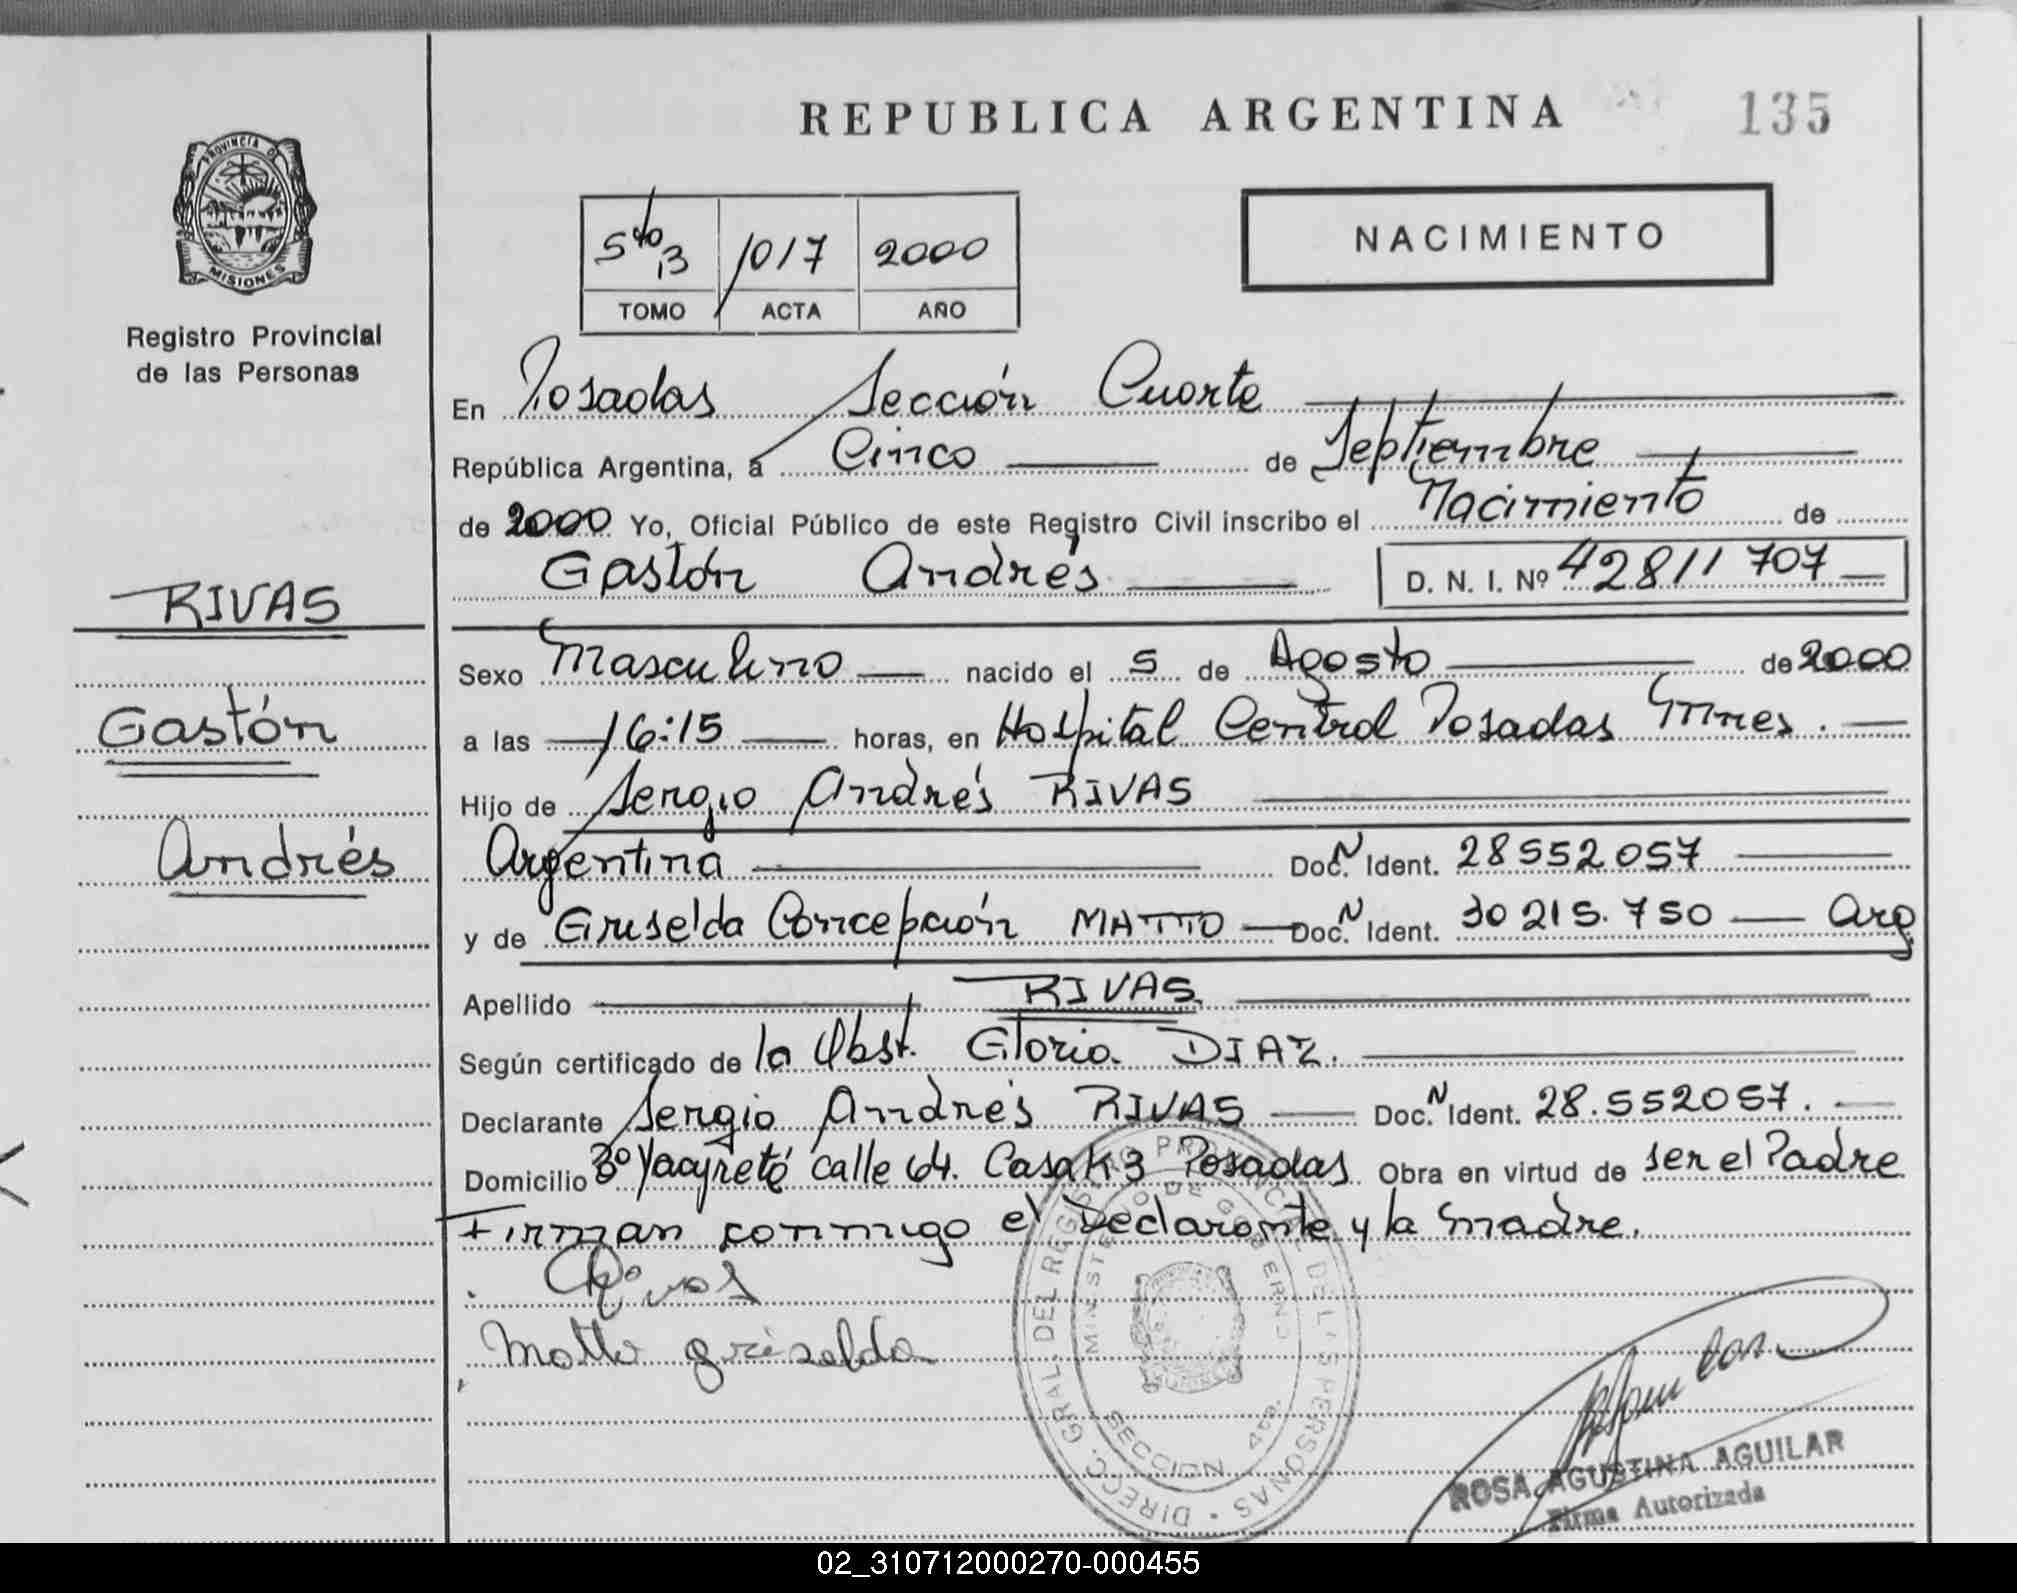 REPUBLICA ARGENTINA
135
PROVINCIA DE
MISIONES
Registro Provincial
de las Personas
5to B 1017 2000
TOMO ACTA AÑO
NACIMIENTO
En Posadas Sección Cuarta
República Argentina, a Cinco de Septiembre
de 2000 Yo, Oficial Público de este Registro Civil inscribo el Nacimiento de
Gastón Andrés D. N. I. Nº 42811707
RIVAS
Gastón
Andrés
Sexo Masculino nacido el 5 de Agosto de 2000
a las 16:15 horas, en Hospital Central Posadas Mnes.
Hijo de Sergio Andrés RIVAS
Argentina Doc. N Ident. 28552057
y de Griselda Concepción MATTO Doc. N Ident. 30215.750 Arg
Apellido RIVAS
Según certificado de la Obst. Gloria DIAZ.
Declarante Sergio Andrés RIVAS Doc. N Ident. 28.552057.
Domicilio Bº Yacyretá calle 64. Casa K3 Posadas Obra en virtud de ser el Padre
Firman conmigo el Declarante y la madre.
Rivas
Matto griselda
DIRECC. GRAL. DEL REGISTRO PROVINCIAL DE LAS PERSONAS
MINISTERIO DE GOBIERNO
SECCION 4ta.
ROSA AGUSTINA AGUILAR
Firma Autorizada
02_310712000270-000455